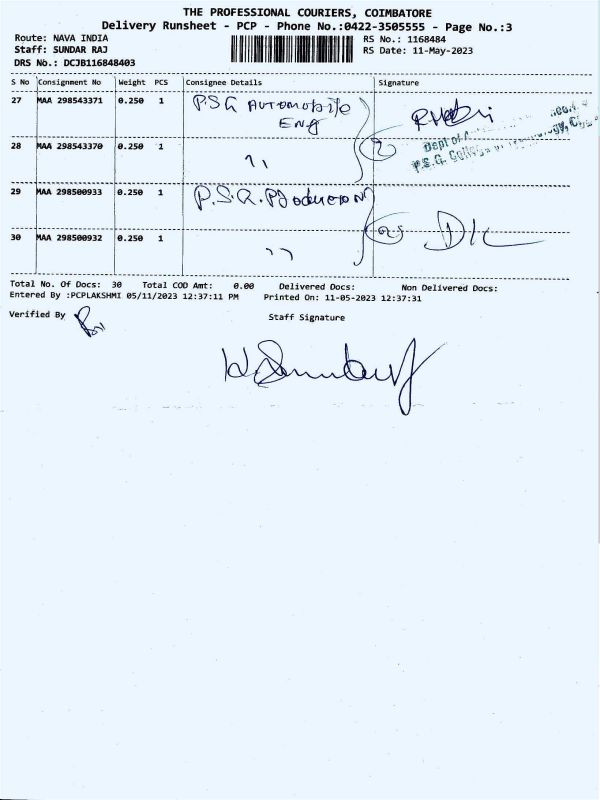 THE PROFESSIONAL COURIERS, COIMBATORE
Delivery Runsheet - PCP - Phone No.:0422-3505555 - Page No.:3
Route: NAVA INDIA RS No.: 1168484
Staff: SUNDAR RAJ RS Date: 11-May-2023
DRS No.: DCJB116848403
S No Consignment No Weight PCS Consignee Details Signature
27 MAA 298543371 0.250 1 P.S.G AUTOMOBILE
ENG
28 MAA 298543370 0.250 1 ,,
Dept of
P.S.G. College of Technology,
29 MAA 298500933 0.250 1 P.S.G. Production
30 MAA 298500932 0.250 1 ,,
Total No. Of Docs: 30 Total COD Amt: 0.00 Delivered Docs: Non Delivered Docs:
Entered By :PCPLAKSHMI 05/11/2023 12:37:11 PM Printed On: 11-05-2023 12:37:31
Verified By Staff Signature